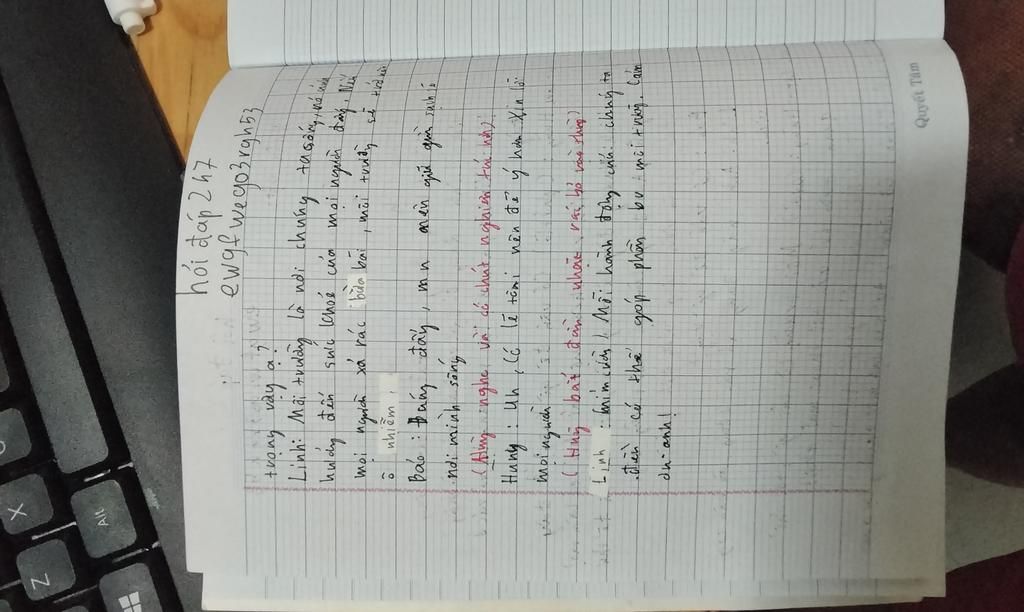 hỏi đáp 247
ewgfwego3rgh53
trọng vậy ạ?
Linh: Môi trường là nơi chúng ta sống, nó ảnh
hưởng đến sức khoẻ của mọi người đấy. Nếu
mọi người xả rác bừa bãi, môi trường sẽ trở nên
ô nhiễm.
Bảo: Đúng đấy, mn nên giữ gìn sạch sẽ
nơi mình sống
(Hùng nghe và có chút nghiêm túc hơn).
Hùng: Uh, có lẽ tôi nên để ý hơn. Xin lỗi
mọi người.
(Hùng bắt đầu nhặt rác bỏ vào thùng)
Linh: mỉm cười / Mỗi hành động của chúng ta
đều có thể góp phần bv môi trường. Cảm
ơn anh!
Quyết Tâm
X
Z
Alt